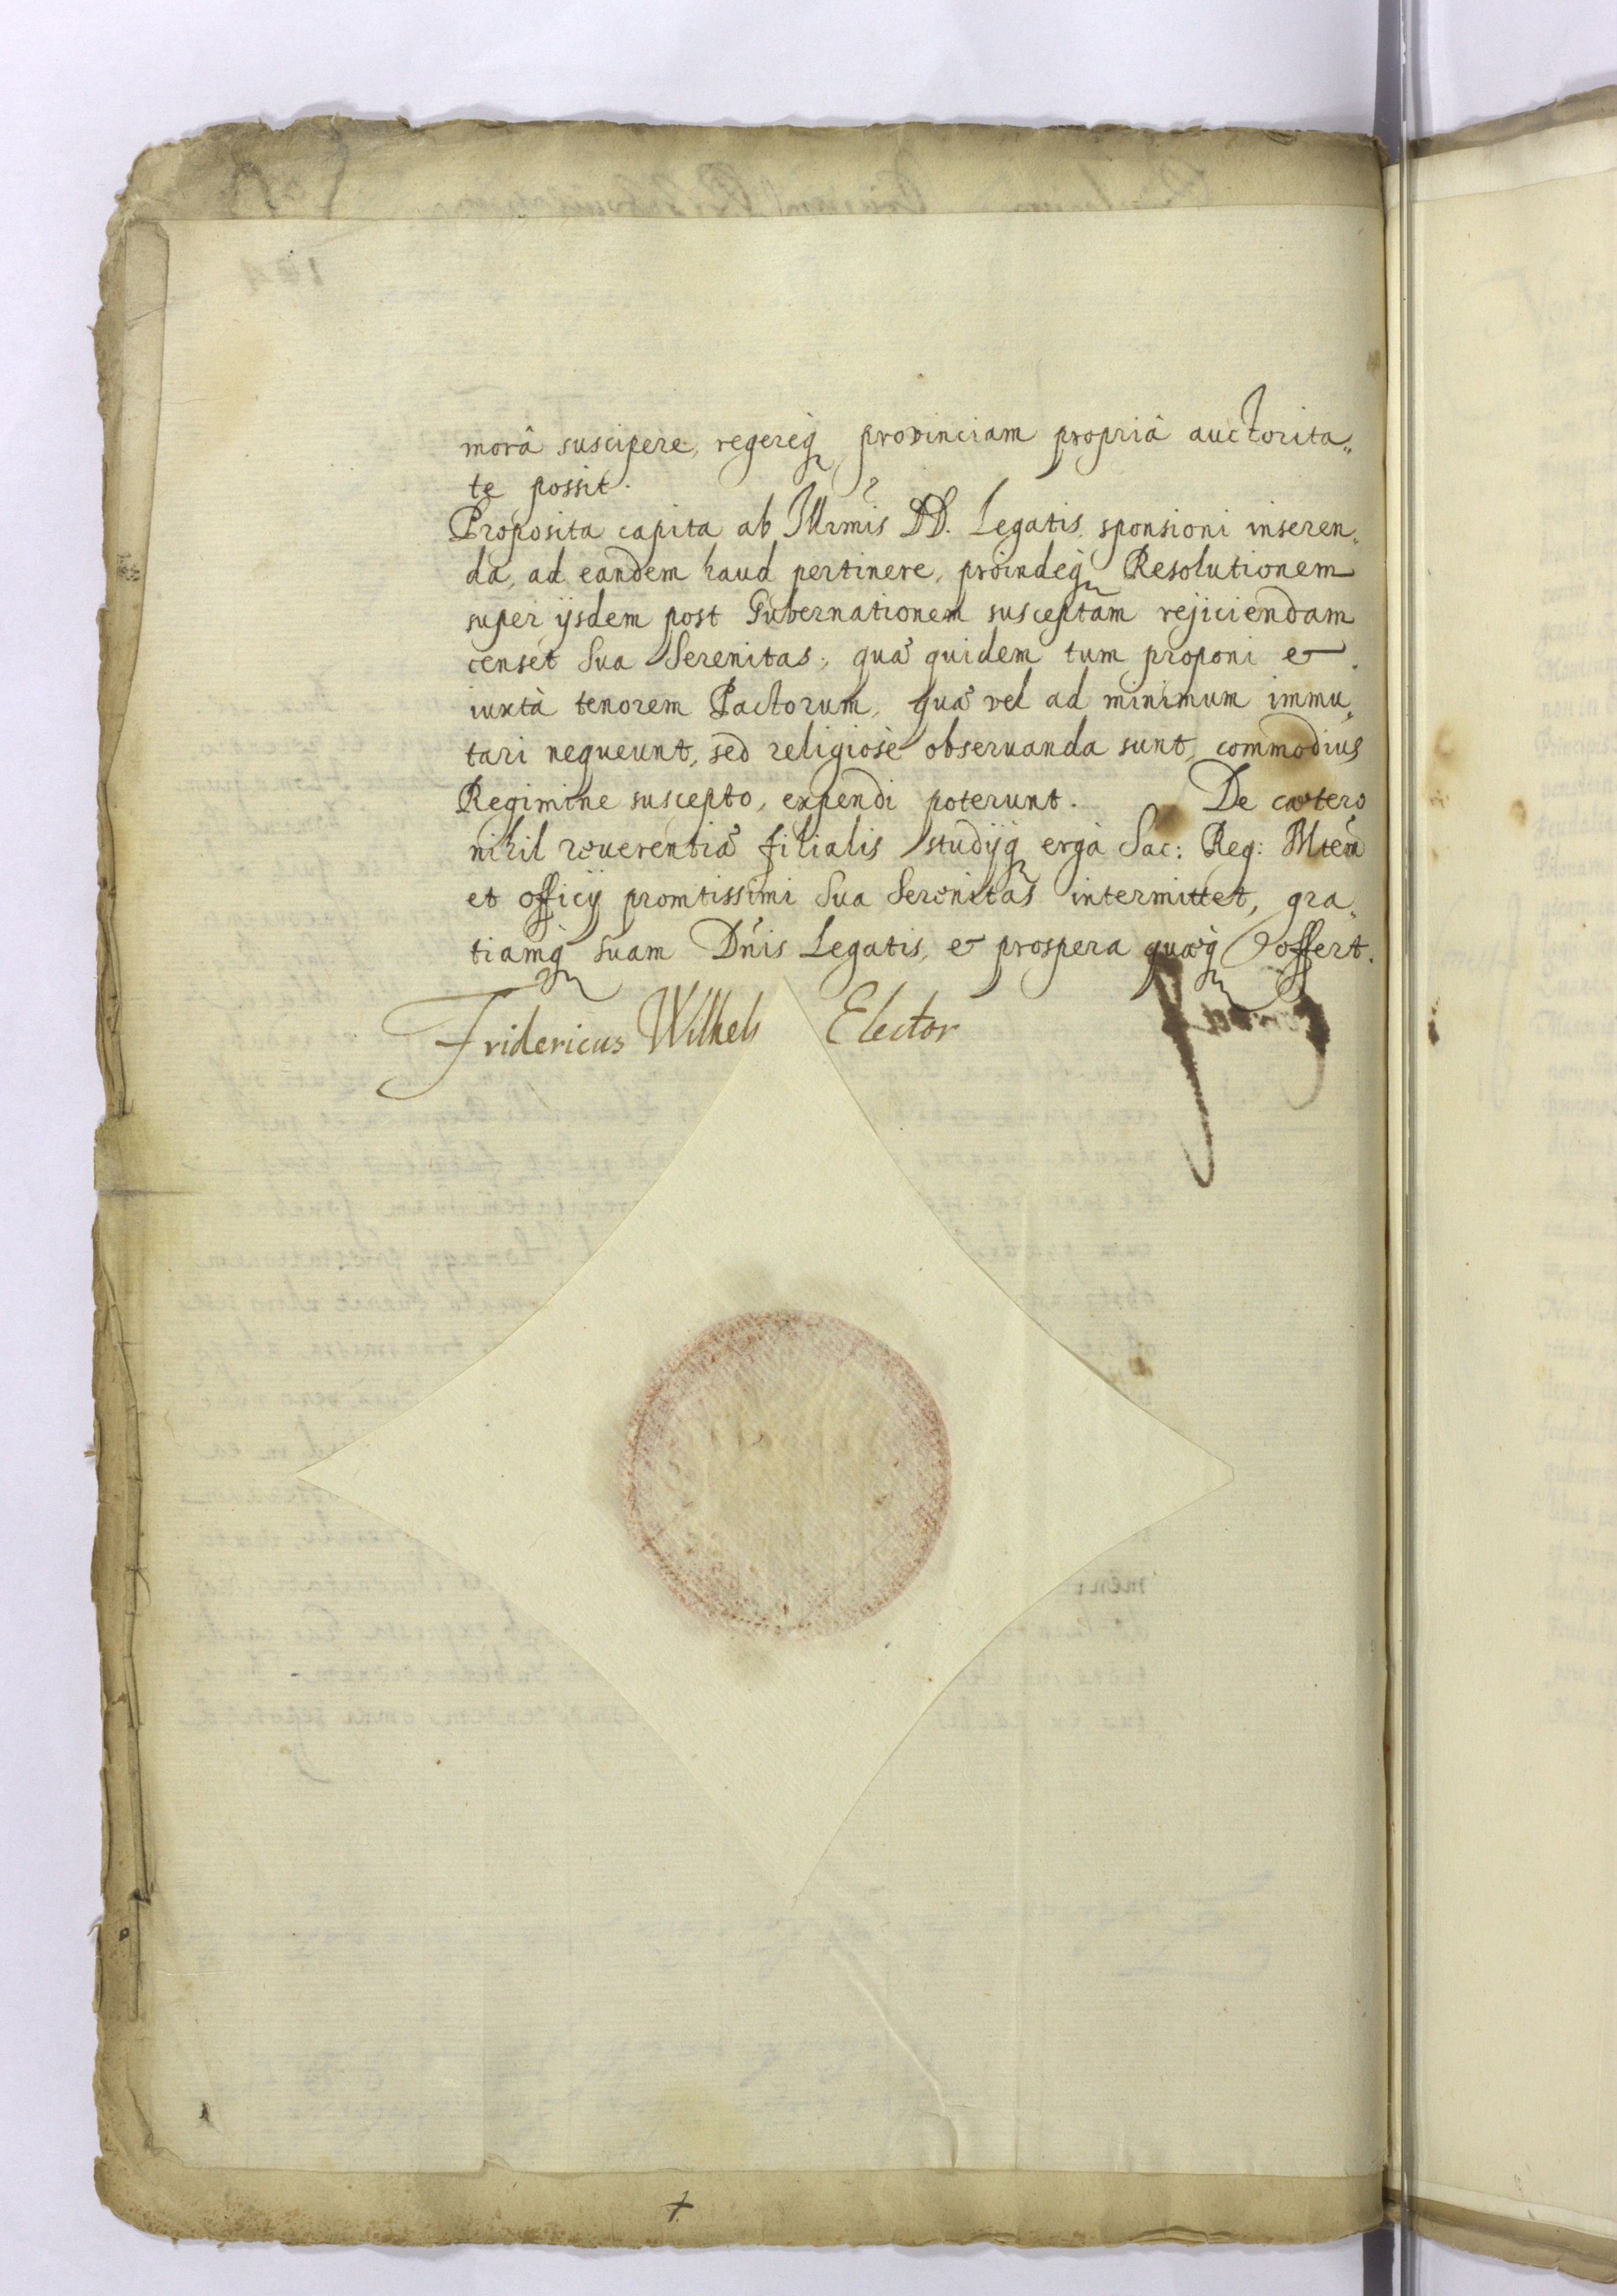 morâ suscipere, regereq́ provinciam propriâ auctorita„
te possit.
Proposita capita ab Illr̃mis DD. Legatis, sponsioni inseren„
da, ad eandem haud pertinere, proindeq́ Resolutionem
super ijsdem post Gubernationem susceptam rejiciendam
censet Sua Serenitas; quæ quidem tum proponi et
iuxtà tenorem Pactorum, quæ vel ad minimum immu„
tari nequeunt, sed religiosè obseruanda sunt, commodius
Regimine suscepto, expendi poterunt. De cætero
nihil reuerentiæ filialis studijq́ ergà Sac: Reg: Mtem
et officij promtissimi Sua Serenitas intermittet, gra„
tiamq́ suam Dńis Legatis, et prospera quæq́ offert.
Fridericus Wilhelm Elector